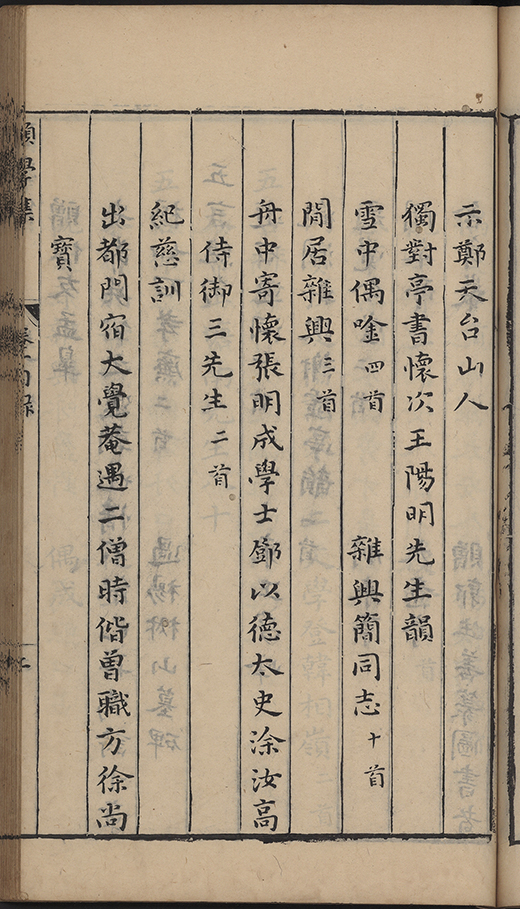 示鄭天台山人
獨對亭書懷次王陽明先生韻
雪中偶唫四首 雜興簡同志十首
閒居雜興三首
舟中寄懷張明成學士鄧以德太史涂汝高
侍御三先生二首
紀慈訓
出都門宿大覺菴遇二僧時偕曾職方徐尚
寶
願學集 卷一目錄